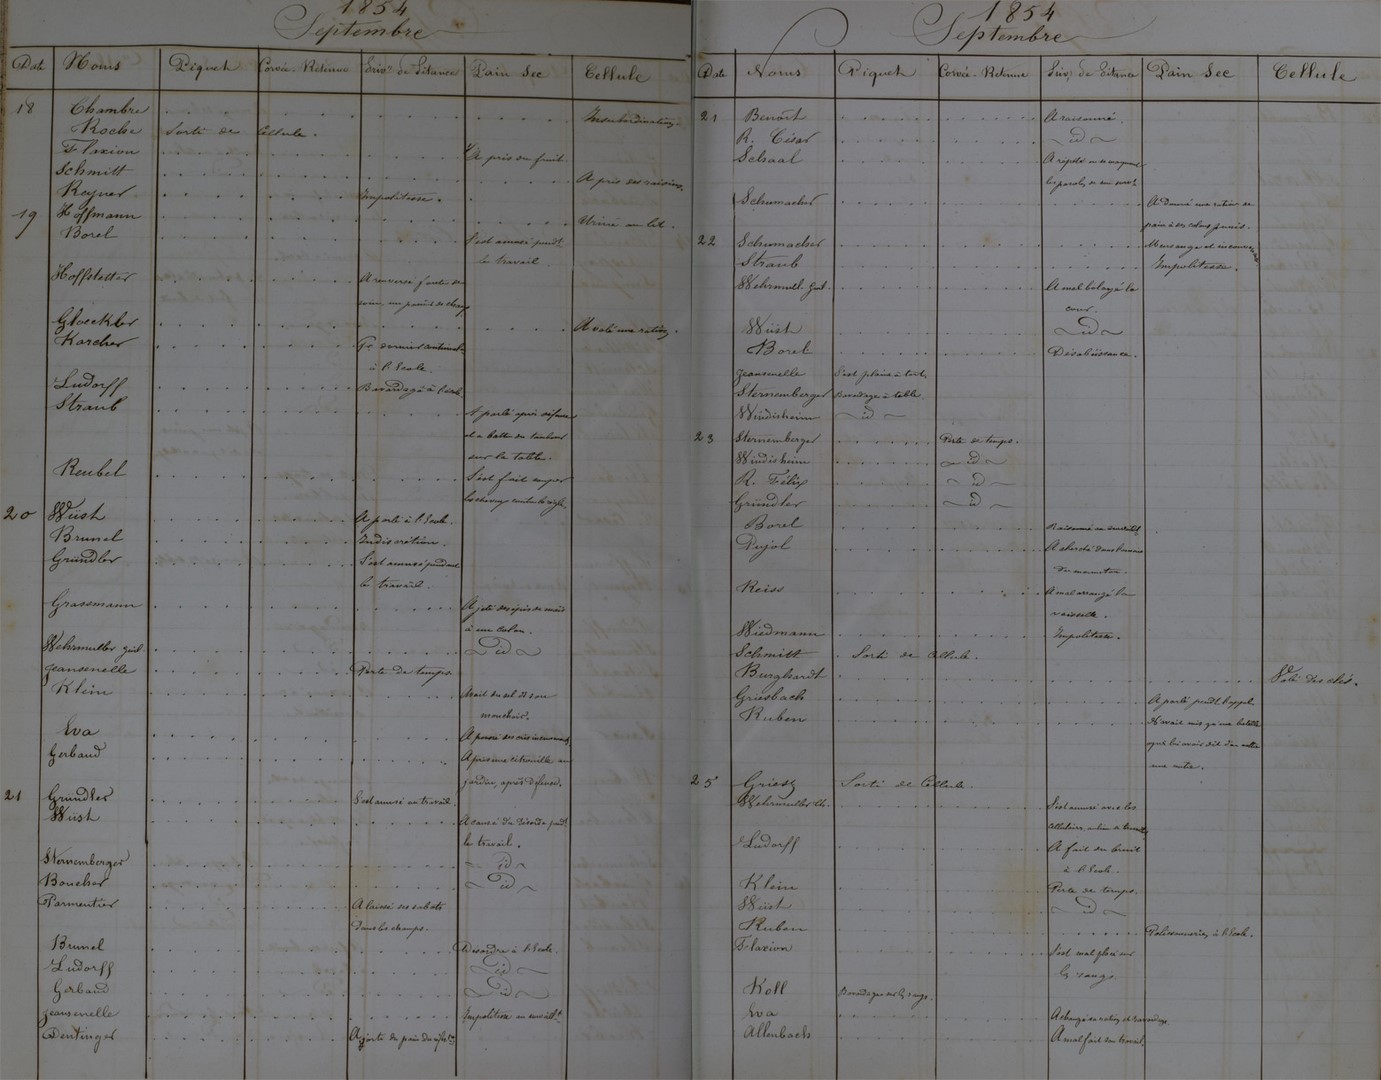 1854
Septembre
Date Noms Piquet Corvée-Retenue Priv. de Pitance Pain Sec Cellule
18 Chambre Insubordination.
Roche Sorti de Cellule.
Flaxion A pris du fruit.
Schmitt A pris des raisins.
Reyner Impolitesse.
19 Hoffmann Uriné au lit.
Borel S'est amusé pendt.
le travail
Hoffstetter A renversé faute de
soin, un panier de
Gloeckler A volé une ration.
Karcher
à l'Ecole.
Ludorff Bavardage à l'école.
Straub A parlé après défense
et a battu du tambour
sur la table.
Reubel S'est fait couper
les cheveux
20 Wüst A parlé à l'Ecole.
Brunel Indiscrétion.
Gründler S'est amusé pendant
le travail.
Grassmann A jeté des épis de maïs
à un colon.
Wehrmuller Guil. id
Jeansenelle Perte de temps
Klein Avait du sel ds son
mouchoir.
Eva A poussé des cris
Gerbaud A pris une citrouille au
jardin, après défense.
21 Gründler S'est amusé au travail.
Wüst A causé du désordre pendt.
le travail.
Sternemberger id
Boucher id
Parmentier A laissé ses sabots
dans les champs.
Brunel Désordre à l'Ecole.
Ludorff id
Gerbaud id
Jeansenelle Impolitesse au surveillt.
Dentinger
1854
Septembre
Date Noms Piquet Corvée-Retenue Priv. de Pitance Pain Sec Cellule
21 Benoît A raisonné.
R. César id
Schaal A répété en se moquant
les paroles de son survt.
Schumacher A donné une ration de
pain à ses colons punis.
22 Schumacher Mensonge et
Straub Impolitesse.
Wehrmull. Guil. A mal balayé la
cour.
Wüst id
Borel Désobéissance.
Jeansenelle S'est plaint à tort.
Sternemberger Bavardage à table.
Windisheim id
23 Sternemberger Perte de temps.
Windisheim id
R. Félix id
Gründler id
Borel Raisonné au surveillt.
Pujol A cherché dans
Reiss A mal arrangé la
vaisselle.
Wiedmann Impolitesse.
Schmitt Sorti de Cellule.
Burghardt Volé des clés.
Griesbach A parlé pendt. l'appel
Ruben
une autre.
25 Griesz Sorti de Cellule.
Wehrmuller Ch. S'est amusé avec les
cellulaires, au lieu de travailler
Ludorff A fait du bruit
à l'Ecole.
Klein Perte de temps.
Wüst id
Ruben Polissonneries, à l'Ecole.
Flaxion S'est mal placé sur
les rangs.
Koll Bavardage sur les rangs.
Eva A changé sa ration
Allenbach A mal fait son travail.